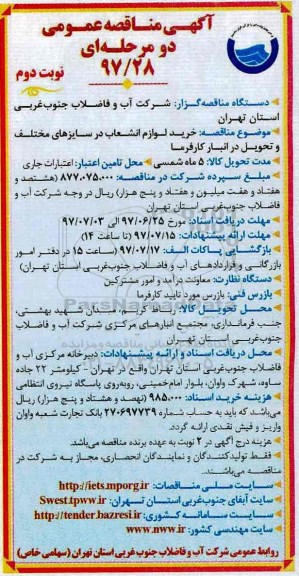 آگهی مناقصه عمومی
دو مرحله‌ای
۹۷/۲۸
نوبت دوم
دستگاه مناقصه‌گزار: شرکت آب و فاضلاب جنوب‌غربی
استان تهران
موضوع مناقصه: خرید لوازم انشعاب در سایزهای مختلف
و تحویل در انبار کارفرما
مدت تحویل کالا: ۵ ماه شمسی محل تامین اعتبار: اعتبارات جاری
مبلغ سپرده شرکت در مناقصه: ۸۷۷,۰۷۵,۰۰۰ (هشتصد و
هفتاد و هفت میلیون و هفتاد و پنج هزار) ریال در وجه شرکت آب و
فاضلاب جنوب‌غربی استان تهران
مهلت دریافت اسناد: مورخ ۹۷/۰۶/۲۵ الی ۹۷/۰۷/۰۳
مهلت ارائه پیشنهادات: ۹۷/۰۷/۱۵ (تا ساعت ۱۴)
بازگشایی پاکات الف: ۹۷/۰۷/۱۷ (ساعت ۱۵ در دفتر امور
بازرگانی و قراردادهای آب و فاضلاب جنوب‌غربی استان تهران)
دستگاه نظارت: معاونت درآمد و امور مشترکین
بازرس فنی: بازرس مورد تایید کارفرما
محل تحویل کالا: رباط کریم، میدان شهید بهشتی،
جنب فرمانداری، مجتمع انبارهای مرکزی شرکت آب و فاضلاب
جنوب‌غربی استان تهران
محل دریافت اسناد و ارائه پیشنهادات: دبیرخانه مرکزی آب و
فاضلاب جنوب‌غربی استان تهران واقع در تهران - کیلومتر ۲۲ جاده
ساوه، شهرک واوان، بلوار امام‌خمینی، روبه‌روی پاسگاه نیروی انتظامی
هزینه خرید اسناد: ۹۸۵,۰۰۰ (نهصد و هشتاد و پنج هزار) ریال
می‌باشد که باید به حساب شماره ۲۷۰۶۹۷۷۳۹ بانک تجارت شعبه واوان
واریز و فیش نقدی ارائه گردد.
هزینه درج آگهی در ۲ نوبت به عهده برنده مناقصه می‌باشد.
فقط تولیدکنندگان و نمایندگان انحصاری، مجاز به شرکت در
مناقصه می‌باشند.
سایت ملی مناقصات: http://iets.mporg.ir
سایت آبفای جنوب‌غربی استان تهران: Swest.tpww.ir
سایت سامانه کشوری: http://tender.bazresi.ir
سایت مهندسی کشور: www.nww.ir
روابط عمومی شرکت آب و فاضلاب جنوب غربی استان تهران (سهامی خاص)